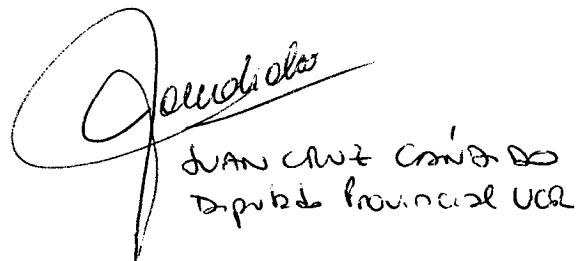 JUAN CRUZ CÁNDIDO
Diputado Provincial UCR